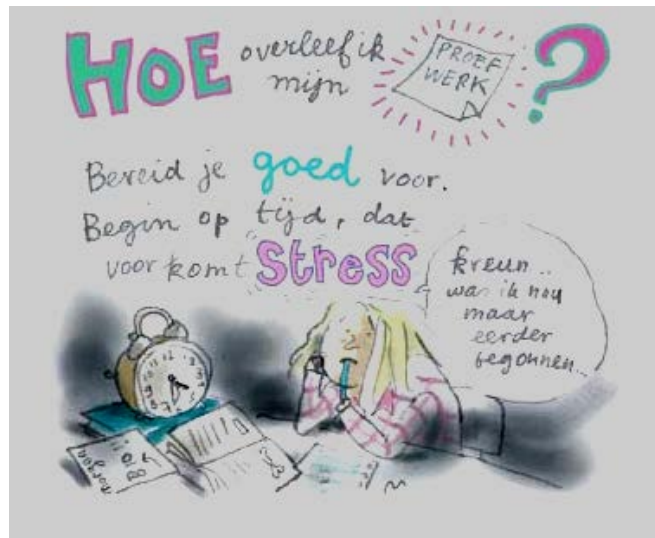 HOE overleef ik mijn PROEF WERK ?
Bereid je goed voor.
Begin op tijd, dat
voorkomt stress
kreun..
was ik nou
maar
eerder
begonnen...
morgen
Bio!!